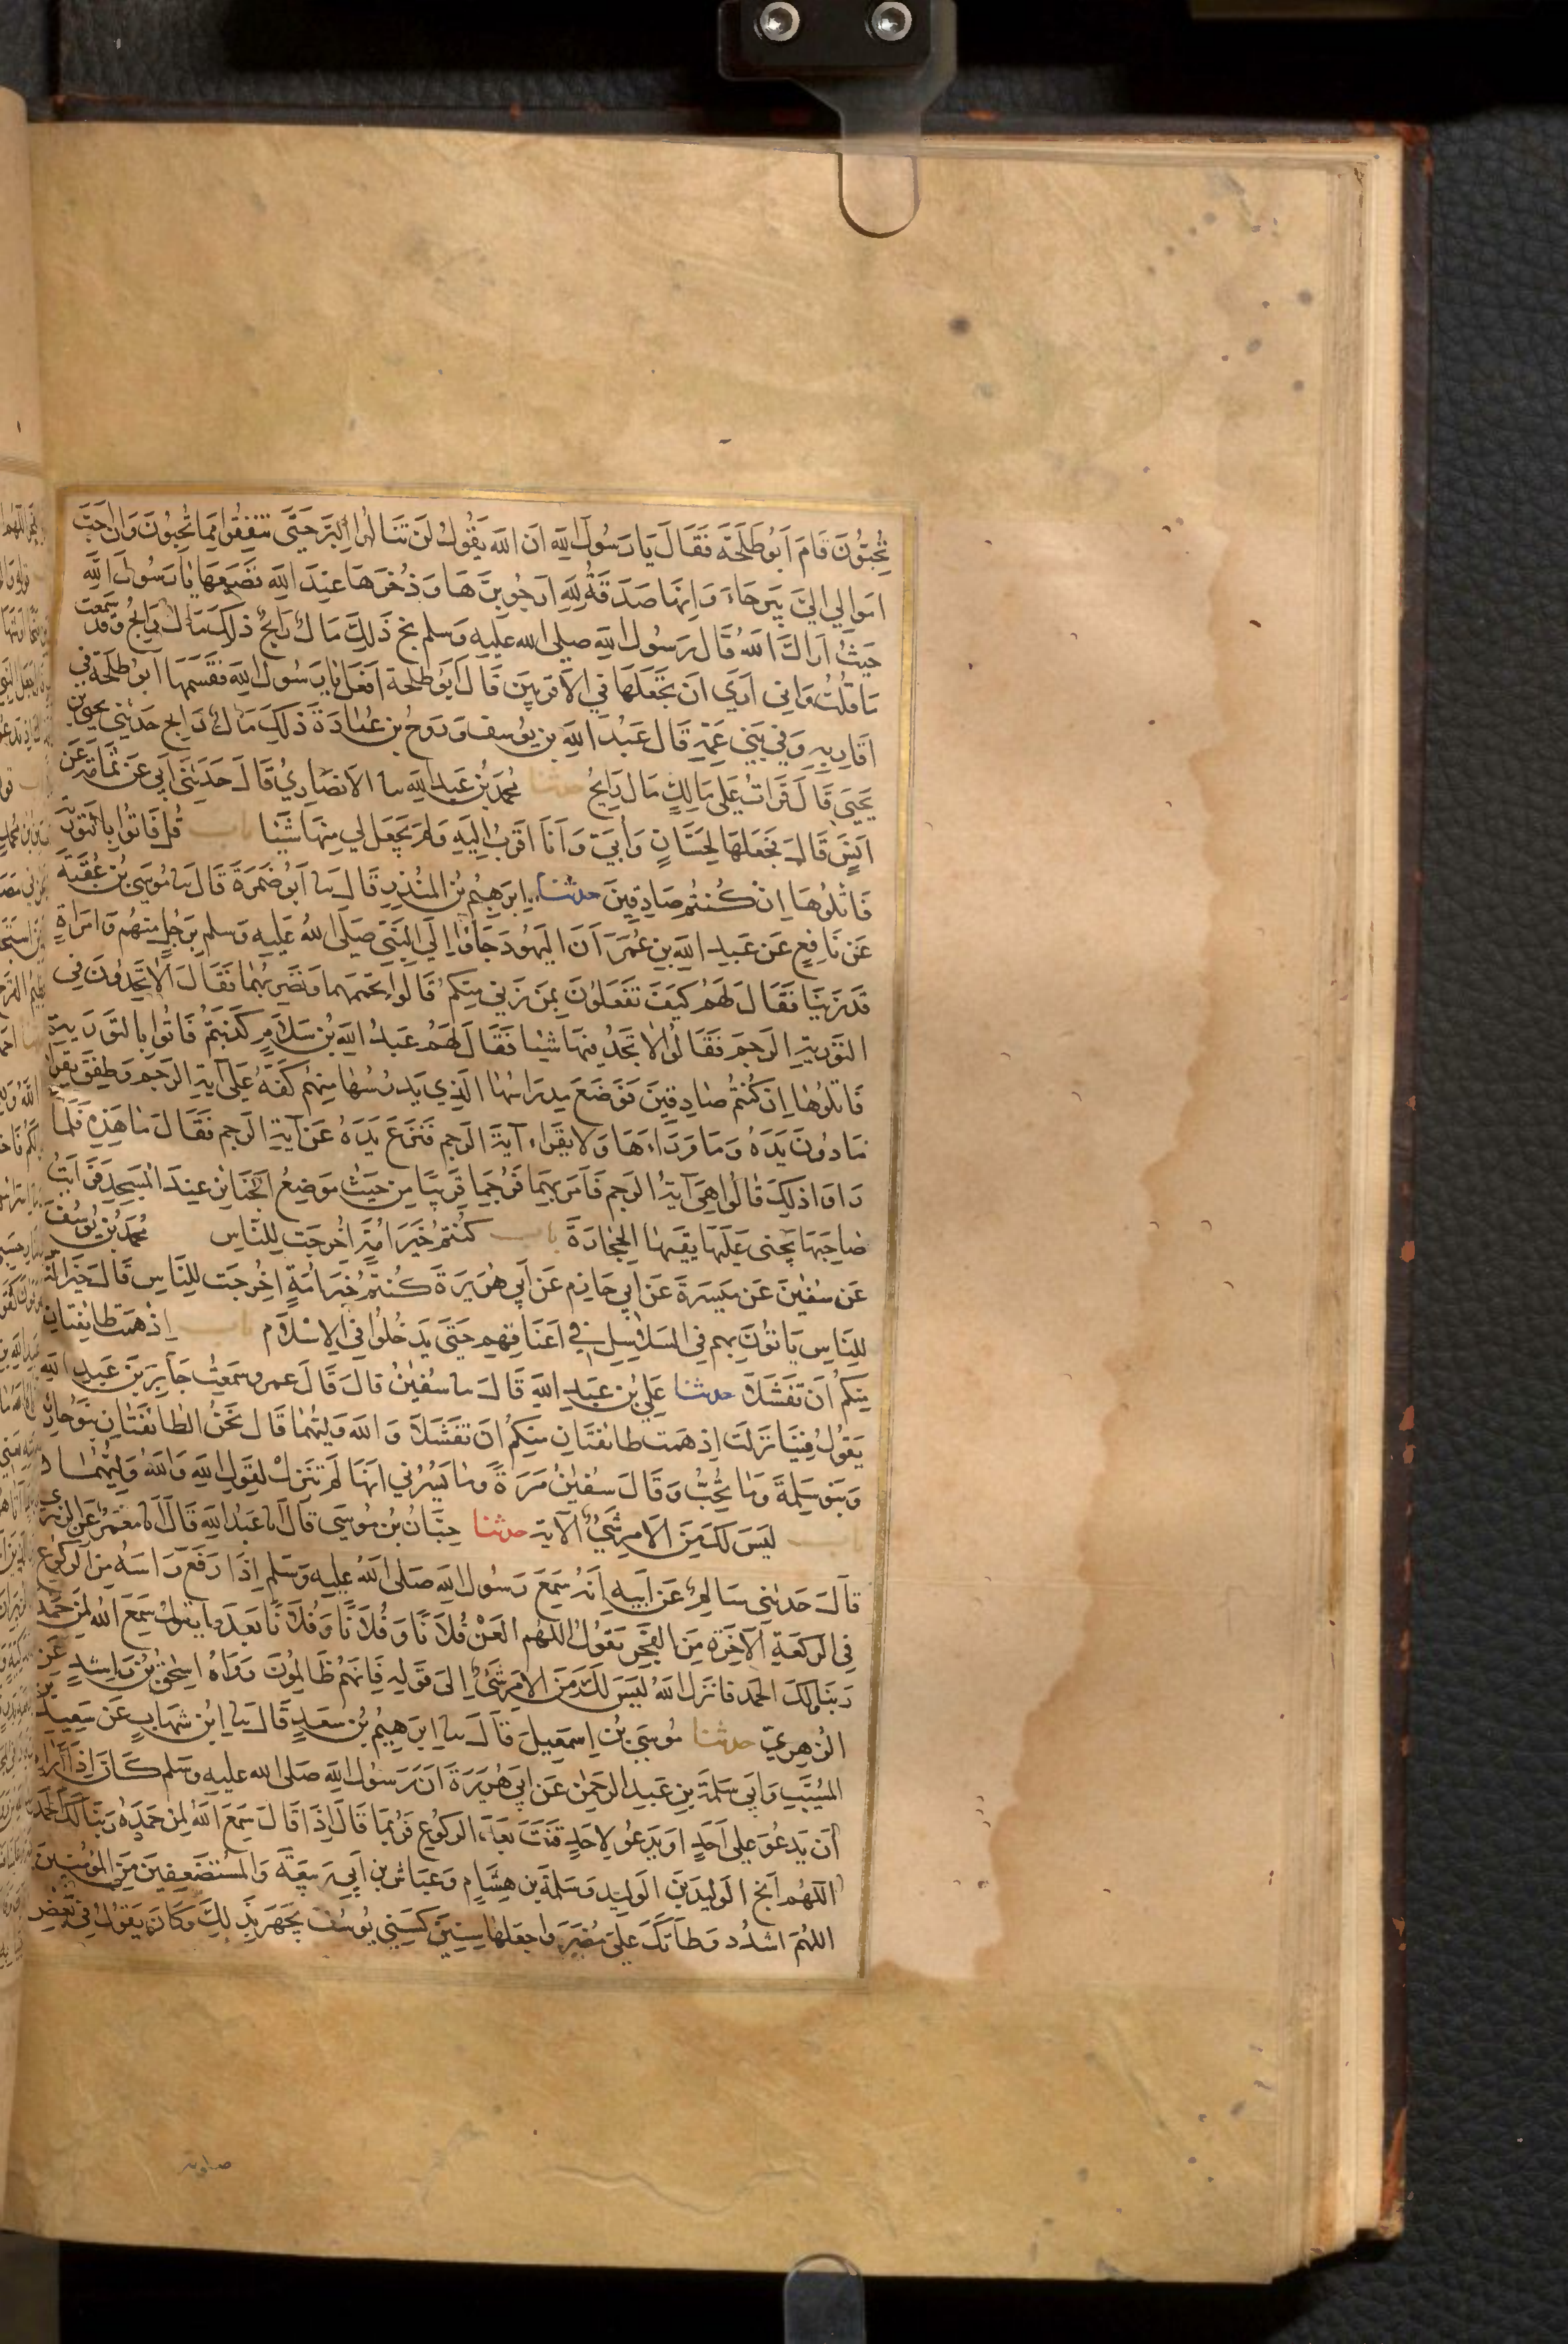 تُحِبُّونَ قَامَ اَبُو طَلْحَةَ فَقَالَ يَا رَسُولَ اللهِ اِنَّ اللهَ يَقُولُ لَنْ تَنَالُوا الْبِرَّ حَتَّى تُنْفِقُوا مِمَّا تُحِبُّونَ وَاِنَّ اَحَبَّ
اَمْوَالِي اِلَيَّ بَيْرَحَاءَ وَاِنَّهَا صَدَقَةٌ لِلهِ اَرْجُو بِرَّهَا وَذُخْرَهَا عِنْدَ اللهِ فَضَعْهَا يَا رَسُولَ اللهِ
حَيْثُ اَرَاكَ اللهُ قَالَ رَسُولُ اللهِ صلى الله عليه وسلم بخ ذَلِكَ مَالٌ رَابِحٌ ذَلِكَ مَالٌ رَابِحٌ وَقَدْ سَمِعْتُ
مَا قُلْتَ وَاِنِّي اَرَى اَنْ تَجْعَلَهَا فِي الْاَقْرَبِينَ قَالَ اَبُو طَلْحَةَ اَفْعَلُ يَا رَسُولَ اللهِ فَقَسَمَهَا اَبُو طَلْحَةَ فِي
اَقَارِبِهِ وَفِي بَنِي عَمِّهِ قَالَ عَبْدُ اللهِ بن يُوسُفَ وَرَوْحُ بن عُبَادَةَ ذَلِكَ مَالٌ رَابِحٌ حَدَّثَنِي يَحْيَى بن
يَحْيَى قَالَ قَرَاْتُ عَلَى مَالِكٍ مَالٌ رَايِحٌ حدثنا مُحَمَّدُ بْنُ عَبْدِ اللهِ ثنا الْاَنْصَارِيُّ قَالَ حَدَّثَنِي اَبِي عَنْ ثُمَامَةَ عَنْ
اَنَسٍ قَالَ فَجَعَلَهَا لِحَسَّانٍ وَاُبَيٍّ وَاَنَا اَقْرَبُ اِلَيْهِ وَلَمْ يَجْعَلْ لِي مِنْهَا شَيْئًا باب قُلْ فَاْتُوا بِالتَّوْرَيةِ
فَاتْلُوهَا اِنْ كُنْتُمْ صَادِقِينَ حدثنا اِبْرَهِيمُ بْنُ الْمُنْذِرِ قَالَ ثنا اَبُو ضَمْرَةَ قَالَ ثنا مُوسَى بْنُ عُقْبَةَ
عَنْ نَافِعٍ عَنْ عَبْدِ اللهِ بنِ عُمَرَ اَنَّ الْيَهُودَ جَاؤُا اِلَى النَّبِيِّ صَلَى اللهُ عَلَيْهِ وَسَلم بِرَجُلٍ مِنْهُمْ وَامْرَاَةٍ
قَدْ زَنَيَا فَقَالَ لَهُمْ كَيْفَ تَفْعَلُونَ بِمَنْ زَنَى مِنْكُمْ قَالُوا نُحَمِّمُهُمَا وَنَضْرِبُهُمَا فَقَالَ اَلَا تَجِدُونَ فِي
التَّوْرَيةِ الرَّجْمَ فَقَالُوا لَا نَجِدُ فِيهَا شَيْئًا فَقَالَ لَهُمْ عَبْدُ اللهِ بْنُ سَلَامٍ كَذَبْتُمْ فَاْتُوا بِالتَّوْرَيةِ
فَاتْلُوهَا اِنْ كُنْتُمْ صَادِقِينَ فَوَضَعَ مِدْرَاسُهَا الَّذِي يُدَرِّسُهَا مِنْهُمْ كَفَّهُ عَلَى آيَةِ الرَّجْمِ وَطَفِقَ يَقْرَاُ
مَا دُونَ يَدِهِ وَمَا وَرَاءَهَا وَلَا يَقْرَاُ آيَةَ الرَّجْمِ فَنَزَعَ يَدَهُ عَنْ آيَةِ الرَّجْمِ فَقَالَ مَا هَذِهِ فَلَمَّا
رَاَوْا ذَلِكَ قَالُوا هِيَ آيَةُ الرَّجْمِ فَاَمَرَ بِهِمَا فَرُجِمَا قَرِيبًا مِنْ حَيْثُ مَوْضِعُ الْجَنَائِزِ عِنْدَ الْمَسْجِدِ فَرَاَيْتُ
صَاحِبَهَا يَجْنَى عَلَيْهَا يَقِيهَا الْحِجَارَةَ باب كُنْتُمْ خَيْرَ اُمَّةٍ اُخْرِجَتْ لِلنَّاسِ مُحَمَّدُ بْنُ يُوسُفَ
عَنْ سُفْيٰنَ عَنْ مَيْسَرَةَ عَنْ اَبِي حَازِمٍ عَنْ اَبِي هُرَيْرَةَ كُنْتُمْ خَيْرَ اُمَّةٍ اُخْرِجَتْ لِلنَّاسِ قَالَ خَيْرَ النَّاسِ
لِلنَّاسِ يَاْتُونَ بِهِمْ فِي السَّلَاسِلِ فِي اَعْنَاقِهِمْ حَتَّى يَدْخُلُوا فِي الْاِسْلَامِ باب اِذْ هَمَّتْ طَائِفَتَانِ
مِنْكُمْ اَنْ تَفْشَلَا حدثنا عَلِيُّ بْنُ عَبْدِ اللهِ قَالَ ثنا سُفْيٰنُ قَالَ قَالَ عمرو سَمِعْتُ جَابِرَ بْنَ عَبْدِ اللهِ
يَقُولُ فِينَا نَزَلَتْ اِذْ هَمَّتْ طَائِفَتَانِ مِنْكُمْ اَنْ تَفْشَلَا وَاللهُ وَلِيُّهُمَا قَالَ نَحْنُ الطَّائِفَتَانِ بَنُو حَارِثَةَ
وَبَنُو سَلِمَةَ وَمَا نُحِبُّ وَقَالَ سُفْيٰنُ مَرَّةً وَمَا يَسُرُّنِي اَنَّهَا لَمْ تُنْزَلْ لِقَوْلِ اللهِ وَاللهُ وَلِيُّهُمَا
باب لَيْسَ لَكَ مِنَ الْاَمْرِ شَيْءٌ الْآيَة حدثنا حِبَّانُ بْنُ مُوسَى قَالَ اَنَا عَبْدُ اللهِ قَالَ اَنَا مَعْمَرٌ عَنِ الزُّهْرِي
قَالَ حَدَّثَنِي سَالِمٌ عَنْ اَبِيهِ اَنَّهُ سَمِعَ رَسُولَ اللهِ صَلَى اللهُ عَلَيْهِ وَسَلَّم اِذَا رَفَعَ رَاْسَهُ مِنَ الرُّكُوعِ
فِي الرَّكْعَةِ الْآخِرَةِ مِنَ الْفَجْرِ يَقُولُ اللَّهُمَّ الْعَنْ فُلَانًا وَفُلَانًا وَفُلَانًا بَعْدَ مَا يَقُولُ سَمِعَ اللهُ لِمَنْ حَمِدَهُ
رَبَّنَا وَلَكَ الْحَمْدُ فَاَنْزَلَ اللهُ لَيْسَ لَكَ مِنَ الْاَمْرِ شَيْءٌ اِلَى قَوْلِهِ فَاِنَّهُمْ ظَالِمُونَ رَوَاهُ اِسْحٰقُ بْنُ رَاشِدٍ عَنِ
الزُّهْرِيِّ حدثنا مُوسَى بْنُ اِسْمَعِيلَ قَالَ ثنا اِبْرَهِيمُ بْنُ سَعْدٍ قَالَ ثنا ابْنُ شِهَابٍ عَنْ سَعِيدِ بْنِ
الْمُسَيَّبِ وَاَبِي سَلَمَةَ بْنِ عَبْدِ الرَّحْمٰنِ عَنْ اَبِي هُرَيْرَةَ اَنَّ رَسُولَ اللهِ صَلَى الله عليه وسلم كَانَ اِذَا اَرَادَ
اَنْ يَدْعُوَ عَلَى اَحَدٍ اَوْ يَدْعُوَ لِاَحَدٍ قَنَتَ بَعْدَ الرُّكُوعِ فَرُبَّمَا قَالَ اِذَا قَالَ سَمِعَ اللهُ لِمَنْ حَمِدَهُ رَبَّنَا لَكَ الْحَمْدُ
اللَّهُمَّ اَنْجِ الْوَلِيدَ بْنَ الْوَلِيدِ وَسَلَمَةَ بن هِشَامٍ وَعَيَّاشَ بن اَبِي رَبِيعَةَ وَالْمُسْتَضْعَفِينَ مِنَ الْمُؤْمِنِينَ
اللَّهُمَّ اشْدُدْ وَطْاَتَكَ عَلَى مُضَرَ وَاجْعَلْهَا سِنِينَ كَسِنِي يُوسُفَ يَجْهَرُ بِذَلِكَ وَكَانَ يَقُولُ فِي بَعْضِ